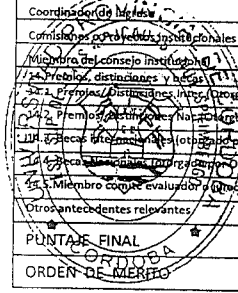 Coordinador de Ingreso
Comisiones o Proyectos Institucionales
Miembro del consejo institucional
14. Premios, distinciones y becas
14.1. Premios/Distinciones Inter. (Otorg
14.2 Premios/ Distinciones Nac. (Otorg
14.3. Becas Internacionales (otorgado p
14.4. Becas Nacionales (otorgado por O
14.5. Miembro comité evaluador o juro
Otros antecedentes relevantes
PUNTAJE FINAL
ORDEN DE MÉRITO
CORDOBA